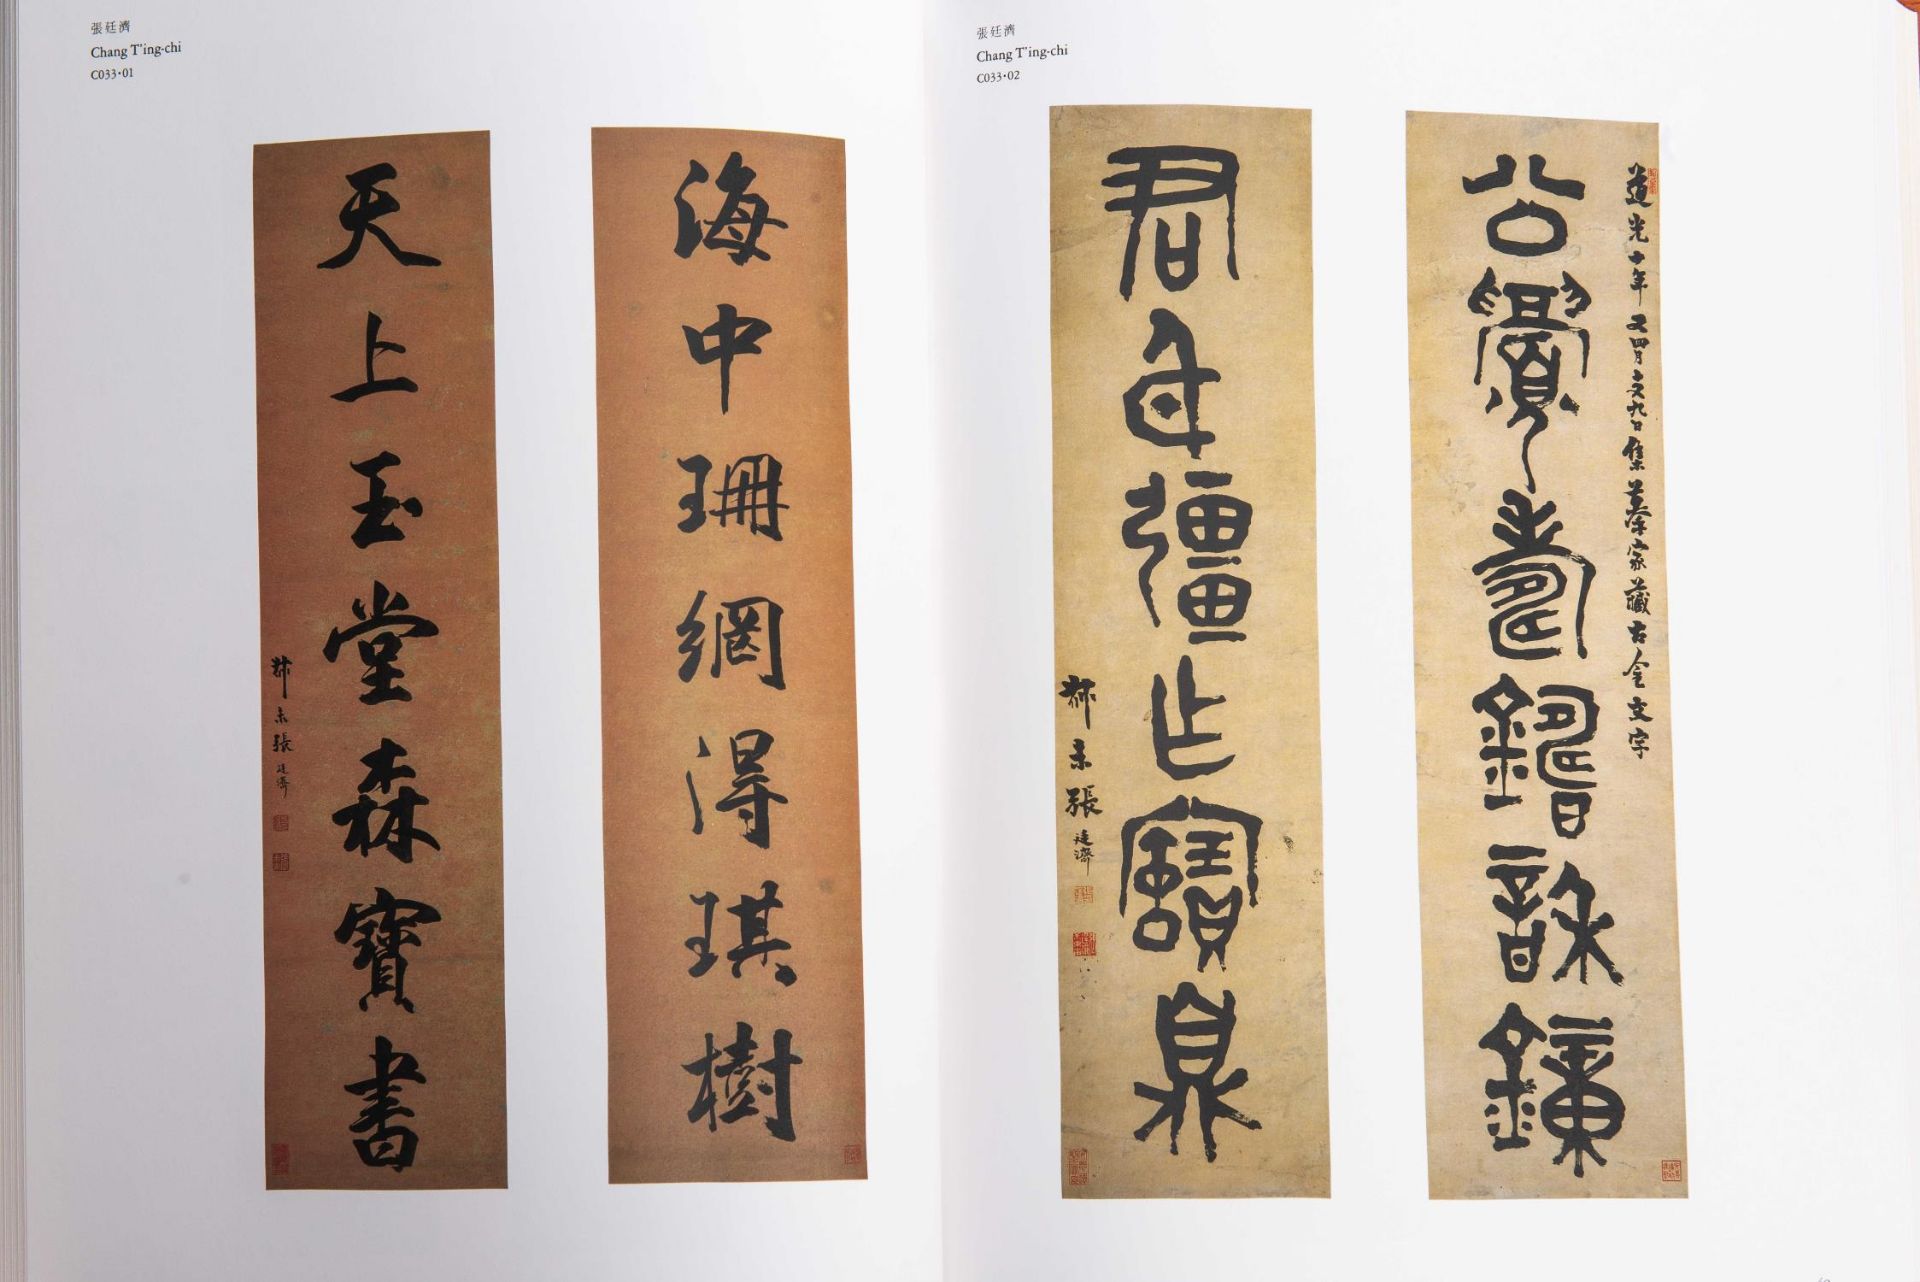 張廷濟
Chang T'ing-chi
C033·01
海中珊網得琪樹
天上玉堂森寶書
叔未張廷濟
張廷濟
Chang T'ing-chi
C033·02
道光十年又四月十又九日集摹家藏古金文字
公眉壽鑄詠鐘
君年彊乍寶鼎
叔未張廷濟